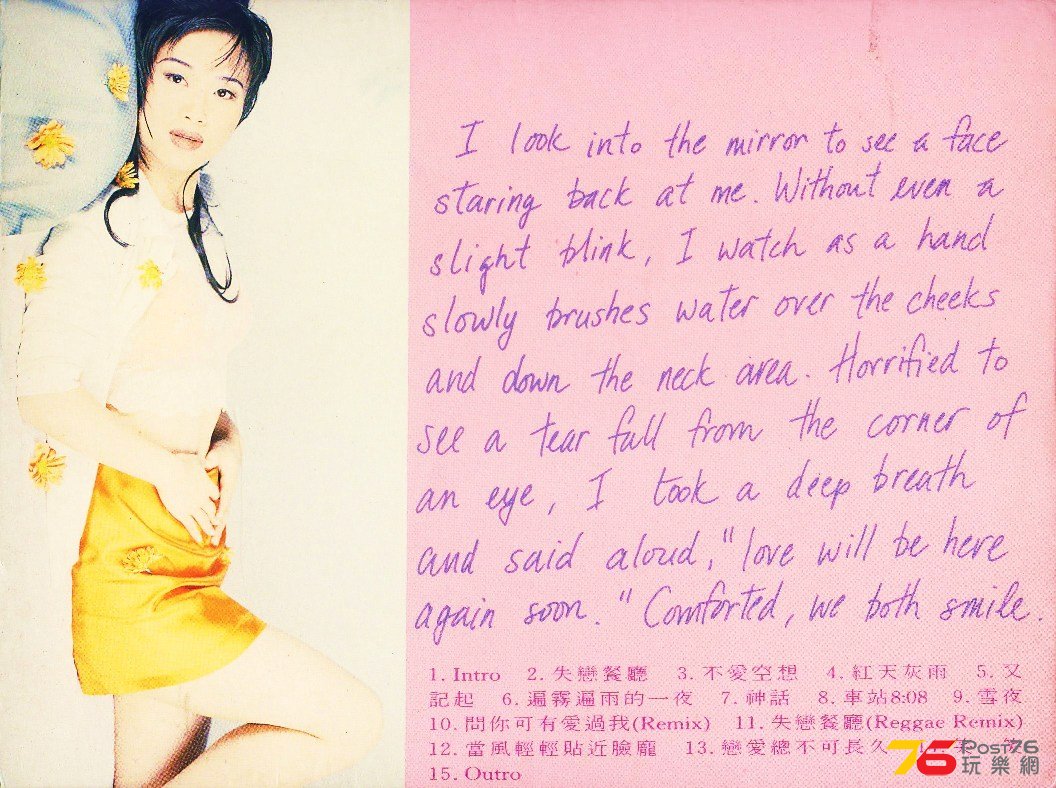 I look into the mirror to see a face
staring back at me. Without even a
slight blink, I watch as a hand
slowly brushes water over the cheeks
and down the neck area. Horrified to
see a tear fall from the corner of
an eye, I took a deep breath
and said aloud, "love will be here
again soon." Comforted, we both smile.
1. Intro 2. 失戀餐廳 3. 不愛空想 4. 紅天灰雨 5. 又
記起 6. 遍霧遍雨的一夜 7. 神話 8. 車站8:08 9. 雪夜
10. 問你可有愛過我(Remix) 11. 失戀餐廳(Reggae Remix)
12. 當風輕輕貼近臉龐 13. 戀愛總不可長久
15. Outro
76 Post76
玩樂網